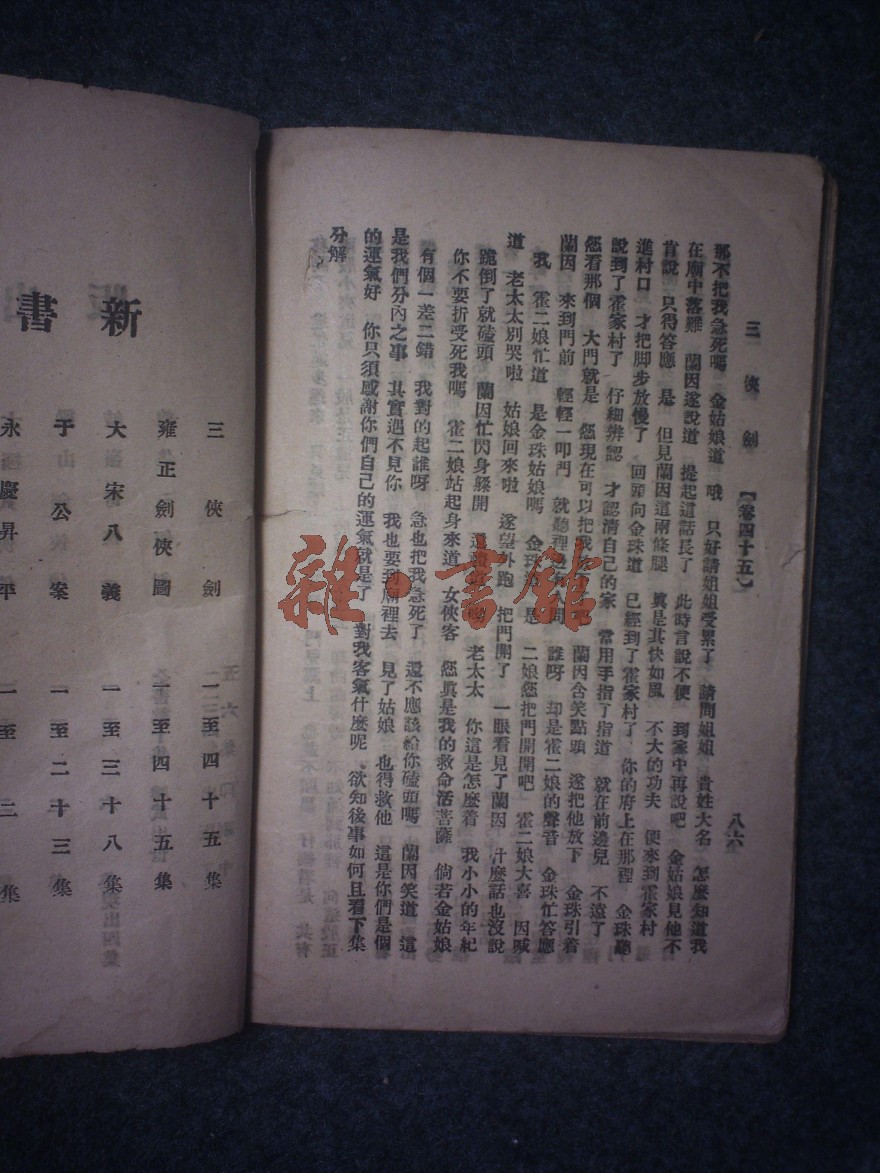 三俠劍 【卷四十五】 八六
那不把我急死嗎 金姑娘道 哦 只好請姐姐受累了 請問姐姐 貴姓大名 怎麼知道我
在廟中落難 蘭因遂說道 提起這話長了 此時言說不便 到家中再說吧 金姑娘見他不
肯說 只得答應 是 但見蘭因這兩條腿 眞是其快如風 不大的功夫 便來到霍家村
進村口 才把脚步放慢了 回頭向金珠道 已經到了霍家村了 你的府上在那裡 金珠聽
說到了霍家村了 仔細辨認 才認清自己的家 常用手指了指道 就在前邊兒 不遠了
您看那個 大門就是 您現在可以把我 蘭因含笑點頭 遂把他放下 金珠引着
蘭因 來到門前 輕輕一叩門 就聽裡 問 誰呀 却是霍二娘的聲音 金珠忙答應
我 霍二娘忙道 是金珠姑娘嗎 金珠道 是 二娘您把門開開吧 霍二娘大喜 因喊
道 老太太別哭啦 姑娘回來啦 遂望外跑 把門開了 一眼看見了蘭因 什麼話也沒說
跪倒了就磕頭 蘭因忙閃身躱開 老太太 你這是怎麼着 我小小的年紀
你不要折受死我嗎 霍二娘站起身來道 女俠客 您眞是我的救命活菩薩 倘若金姑娘
有個一差二錯 我對的起誰呀 急也把我急死了 還不應該給你磕頭嗎 蘭因笑道 這
是我們分內之事 其實遇不見你 我也要到廟裡去 見了姑娘 也得救他 這是你們是個
的運氣好 你只須感謝你們自己的運氣就是了 對我客氣什麼呢 欲知後事如何且看下集
分解
新書
三俠劍 一至四十五集
雍正劍俠圖 一至四十五集
大宋八義 一至三十八集
于公案 一至二十三集
永慶昇平 一至三集
雜·書館